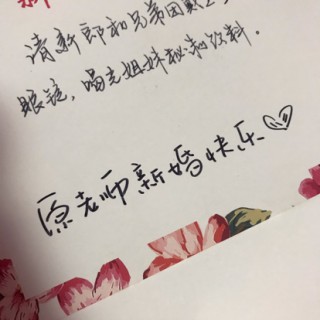 请新郎和兄弟团戴上
眼镜，喝光姐妹秘制饮料。
原老师新婚快乐